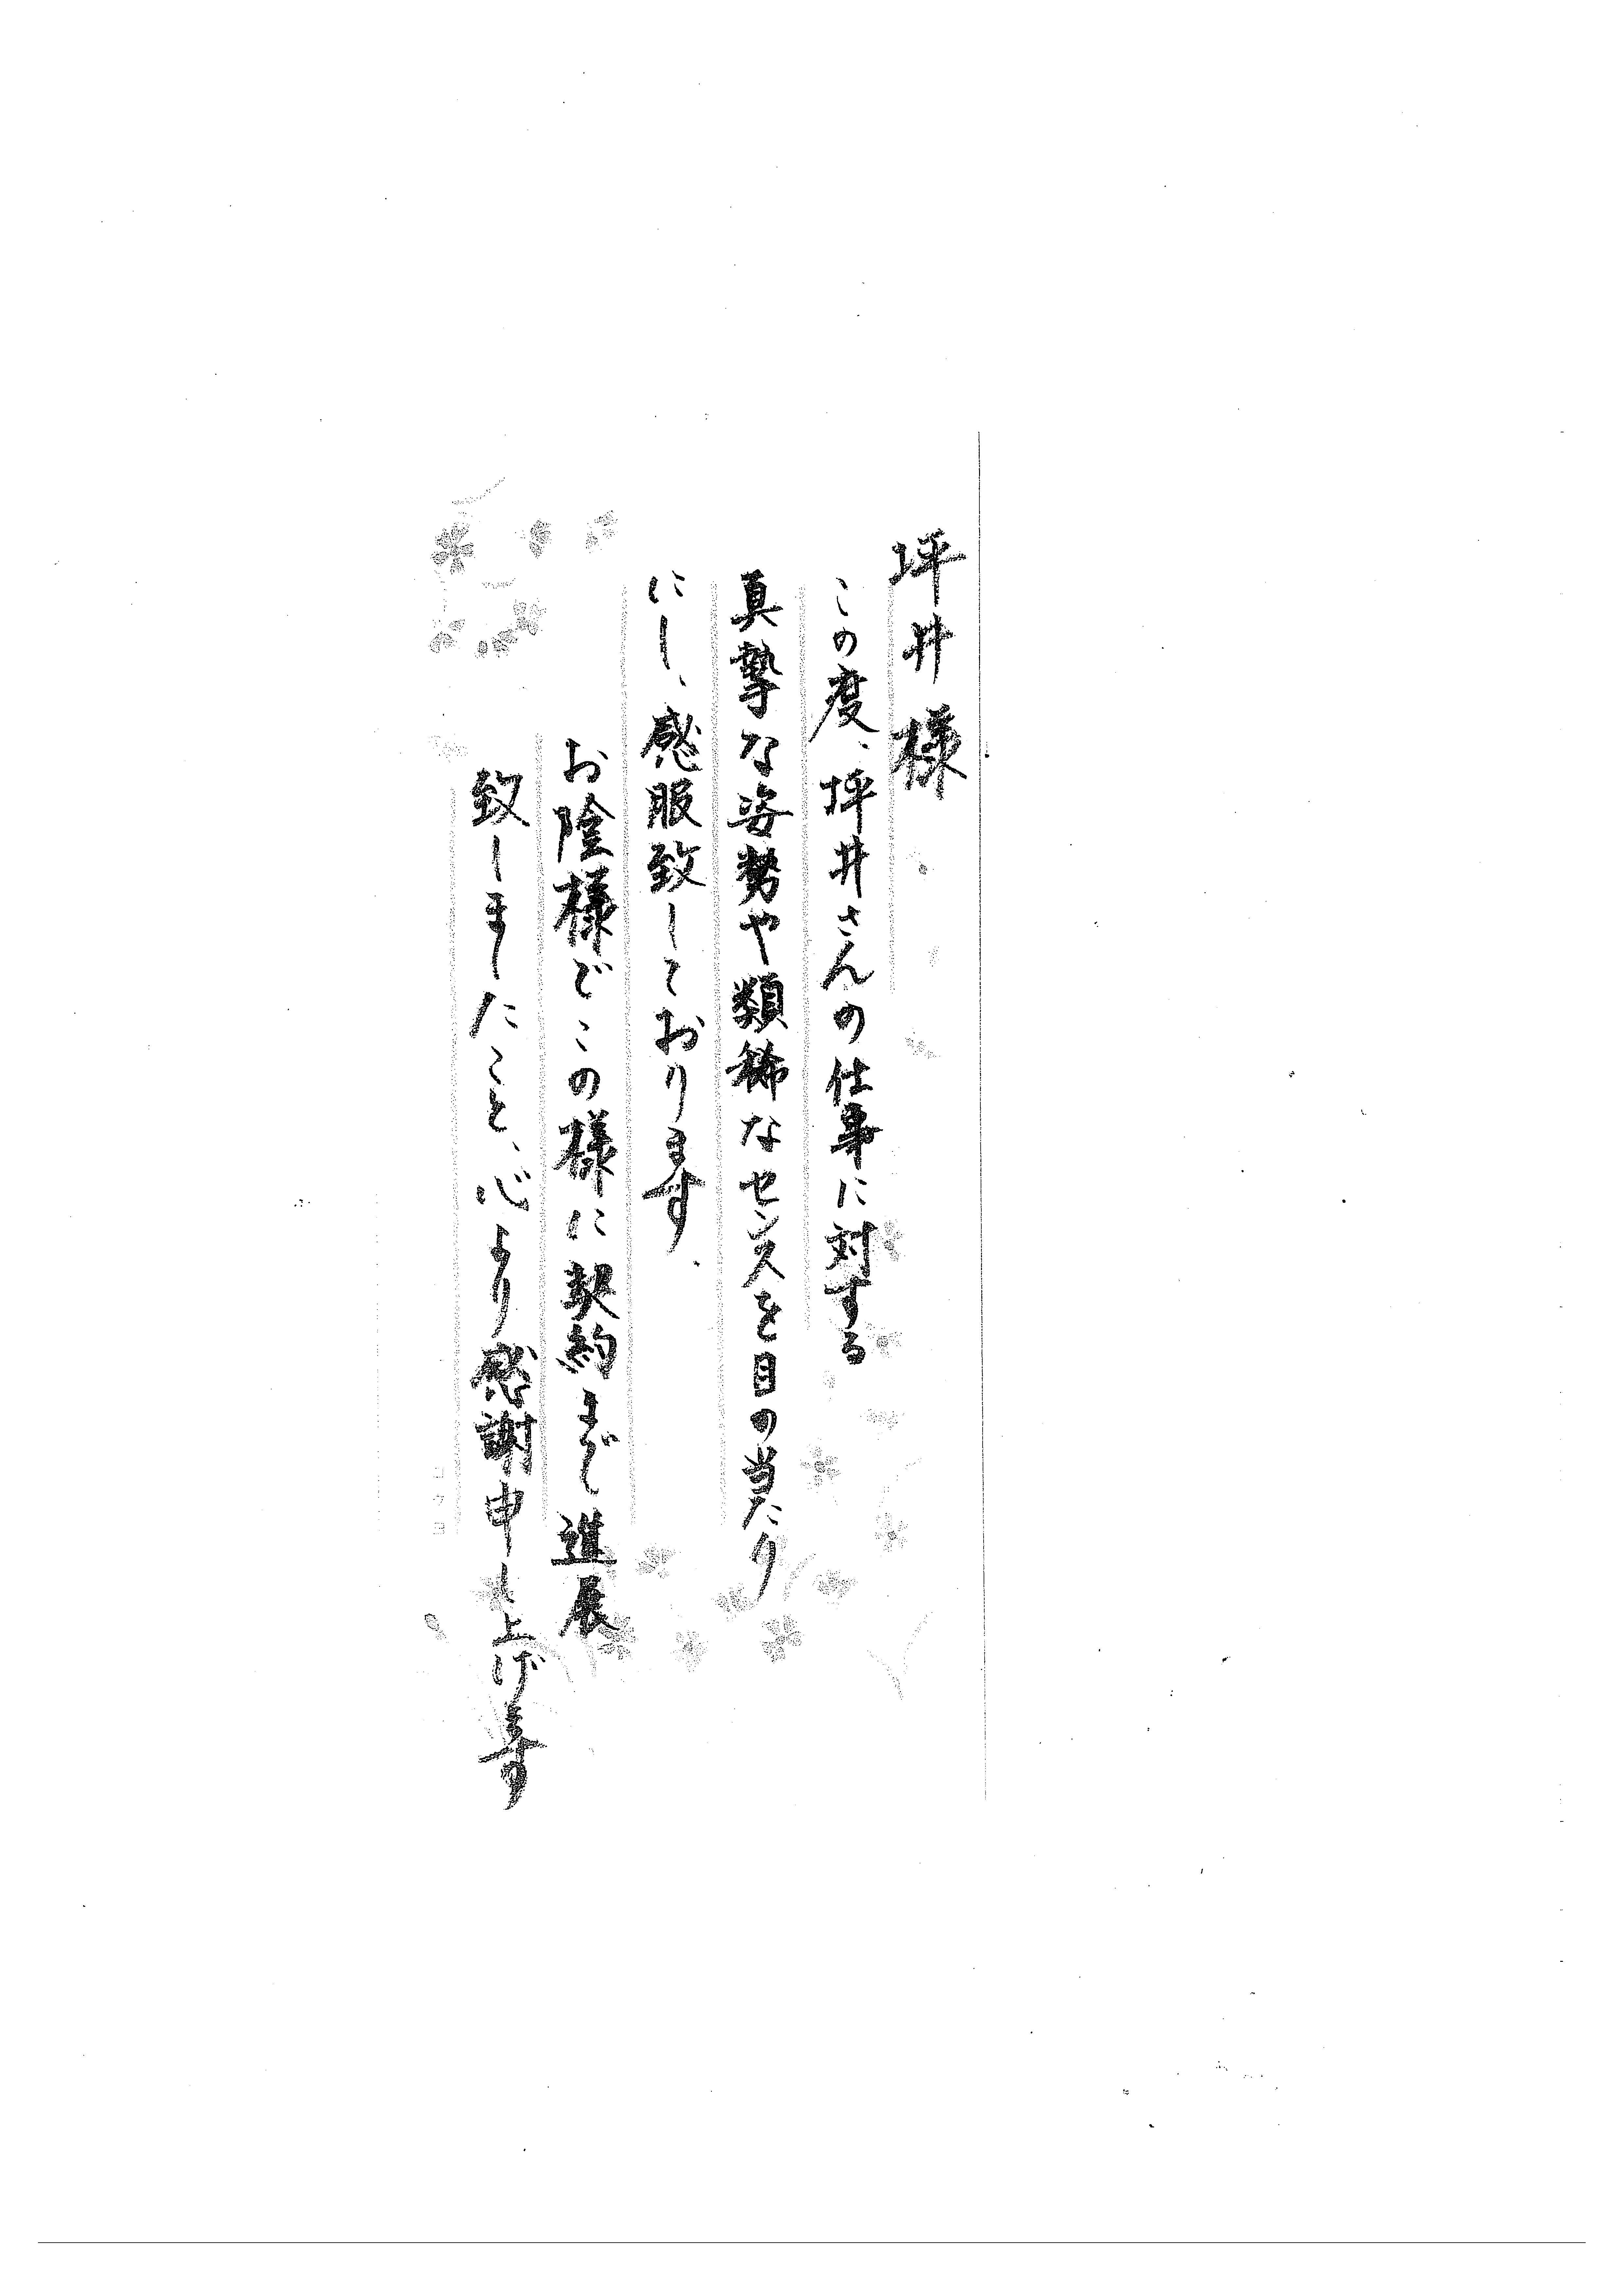 坪井様
この度、坪井さんの仕事に対する
真摯な姿勢や類稀なセンスを目の当たり
にし、感服致しております、
お陰様でこの様に契約まで進展
致しましたこと、心より感謝申し上げます